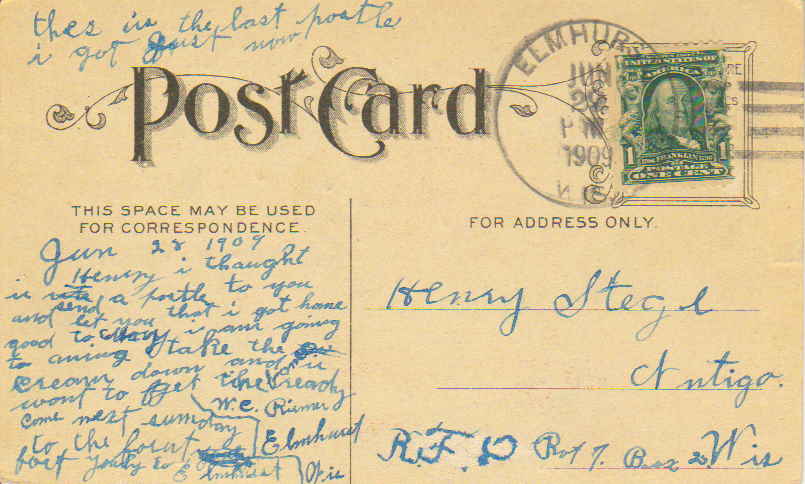 thes is the last postle
i got just now postle
Post Card
ELMHURST
JUN
28
PM
1909
WIS.
UNITED STATES OF
AMERICA
1 1
FRANKLIN
POSTAGE
ONE CENT
THIS SPACE MAY BE USED
FOR CORRESPONDENCE.
FOR ADDRESS ONLY.
Jun 28 1909
Henry i thought
a postle to you
and send
let you that i got home
good to i am going
to take the
cream down and
want to get the ready
come nest sumday
W. C. Riemer
to the
Elmhurst
Elmhurst Wis
Henry Stege
Antigo.
R.F.D Rot 7. Box 20 Wis